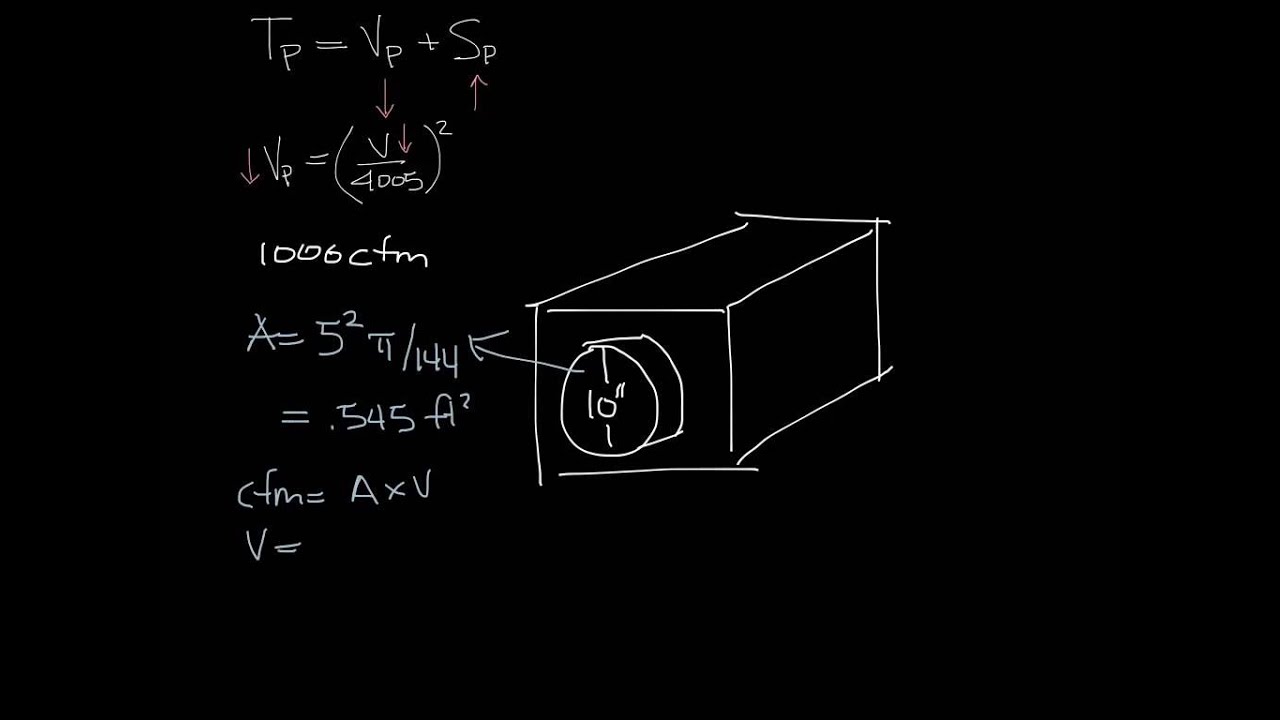 Tp = Vp + Sp
↓ ↑
↓Vp = (V↓/4005)²
1000cfm
A = 5²π/144
10"
= .545 ft²
cfm = A x V
V =